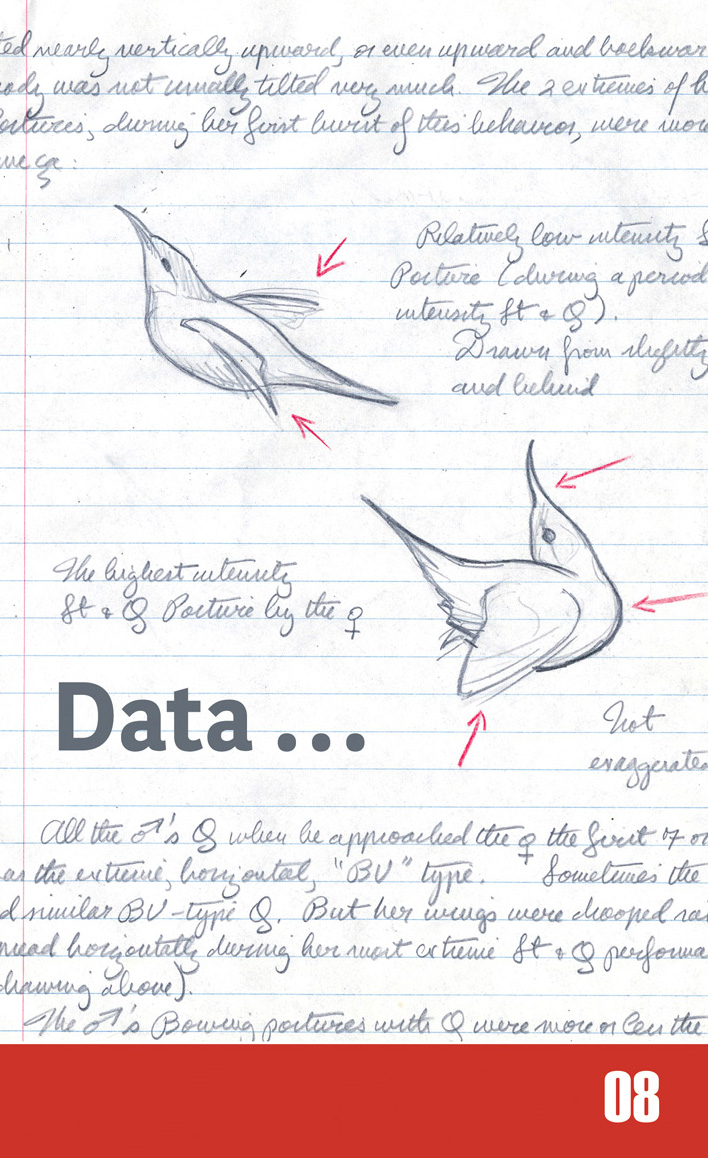 ted nearly vertically upward, or even upward and backwar
ody was not usually tilted very much. The 2 extremes of h
ostures, during her first burst of this behavior, were more
Relatively low intensity S
Posture (during a period
intensity St + Q).
Drawn from slightly
and behind
The highest intensity
St + Q Posture by the ♀
Data ...
Not
exaggerated
All the ♂'s Q when he approached the ♀ the first 7 or
as the extreme, horizontal, "BV" type. Sometimes the
d similar BV-type Q. But her wings were drooped ra
horizontally during her most extreme St + Q performa
drawing above).
The ♂'s Bowing postures with Q were more or less the
08